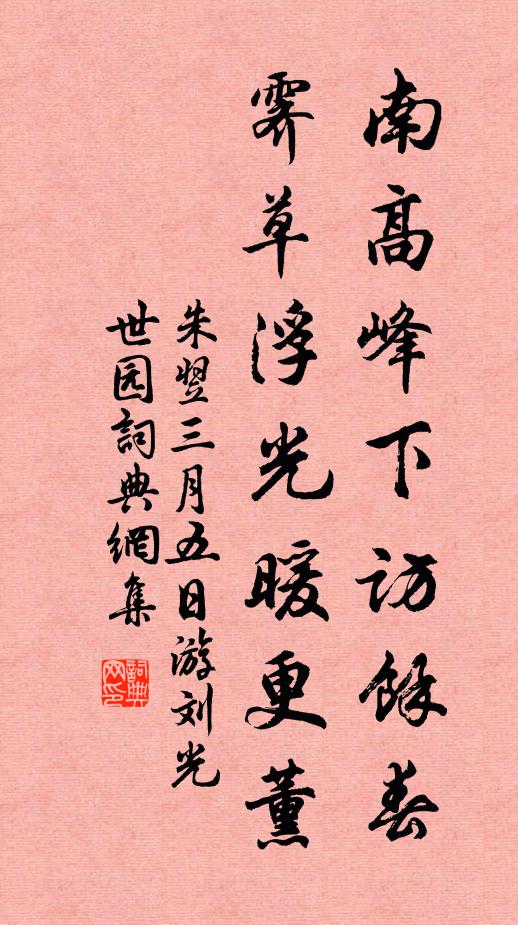 南高峰下访馀春
霁草浮光暖更薰
朱翌三月五日游刘光
世园詞典網集
詞典网印